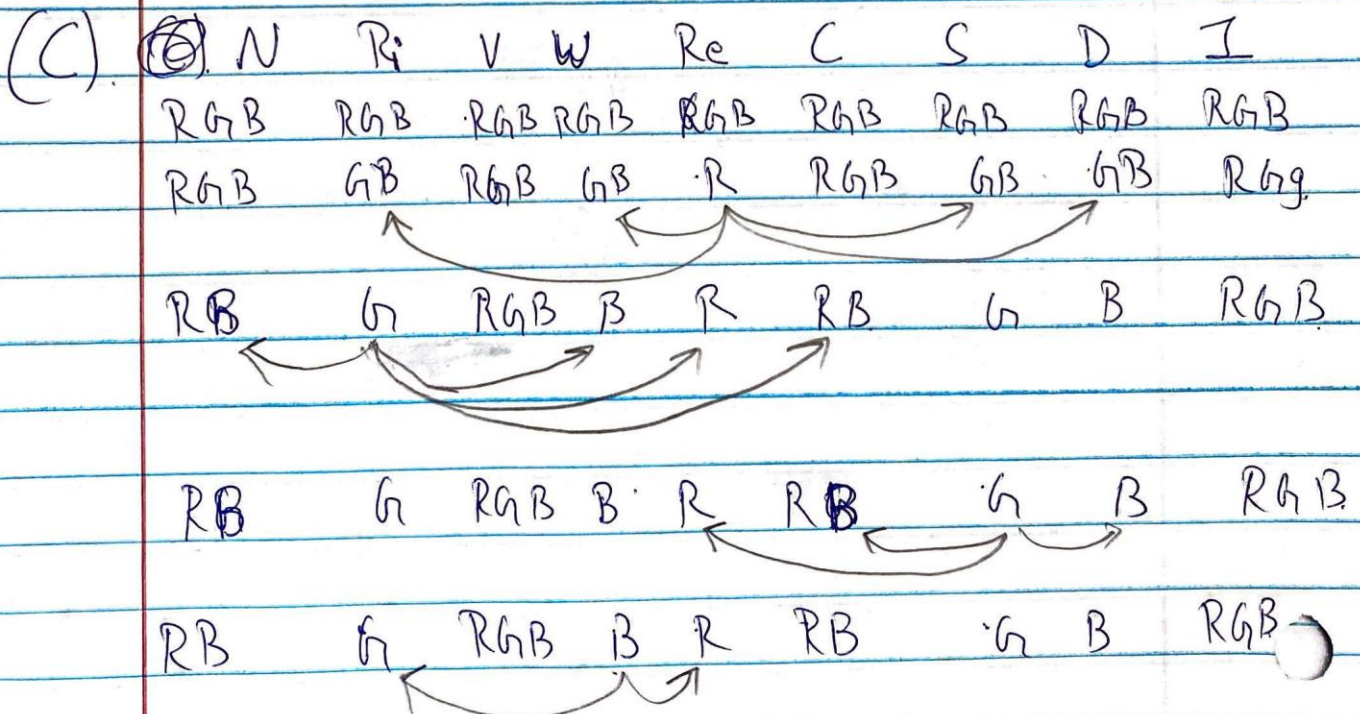 (C). N Ri V W Re C S D I
RGB RGB RGB RGB RGB RGB RGB RGB RGB
RGB GB RGB GB R RGB GB GB RGg.
RB G RGB B R RB G B RGB
RB G RGB B R RB G B RGB.
RB G RGB B R RB G B RGB